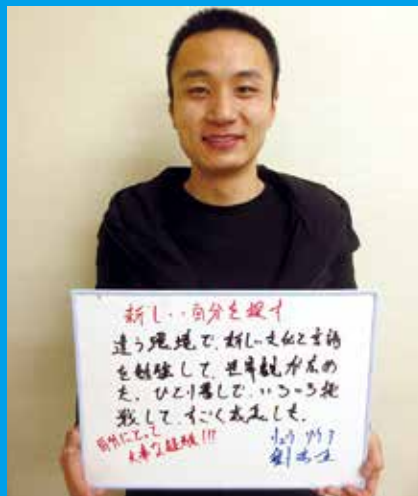 新しい自分を探す
違う環境で、新しい文化と言語
を勉強して、世界観が広め
た。ひとり暮しで、いろいろ挑
戦して、すごく成長した。
自分にとって
大事な経験!!!
りゅう
劉